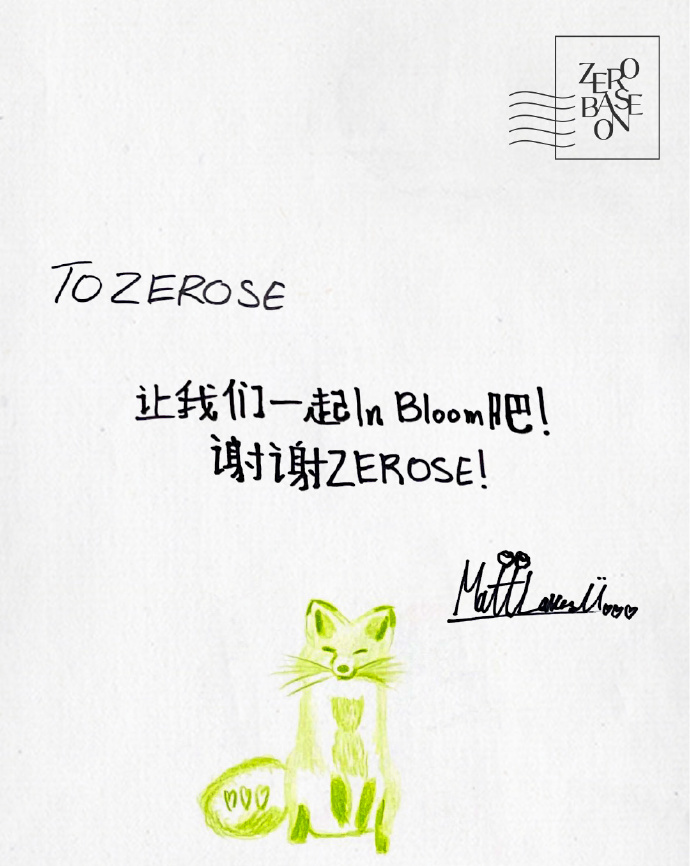 ZERO
BASE
ON
TO ZEROSE
让我们一起In Bloom吧!
谢谢ZEROSE!
Matt Loves Ü